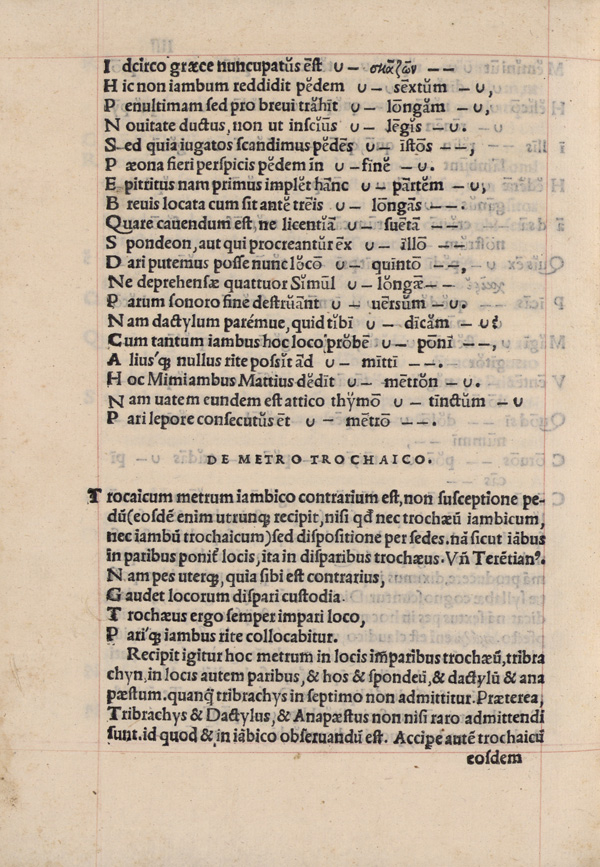 I dcirco græce nuncupatŭs ēst ∪ – σκαζων – –
H ic non iambum reddidit pĕdem ∪ – sēxtŭm – ∪,
P enultimam sed pro breui trăhit ∪ – lōngăm – ∪,
N ouitate ductus, non ut insciŭs ∪ – lēgĭs – ∪.
S ed quia iugatos scandimus pĕdēs ∪ – īstōs – –,
P æona fieri perspicis pĕdem in ∪ – finĕ – ∪.
E pitritus nam primus implĕt hānc ∪ – pārtĕm – ∪,
B reuis locata cum sit antĕ trēis ∪ – lōngās – –.
Quare cauendum est, ne licentĭā ∪ – suētā – –
S pondeon, aut qui procreantŭr ēx ∪ – illō – –
D ari putemus posse nunc lŏcō ∪ – quintō – –,
Ne deprehensæ quattuor Sĭmūl ∪ – lōngæ – –
P arum sonoro fine destrŭānt ∪ – uērsŭm – ∪.
N am dactylum parémue, quid tĭbī ∪ – dīcăm – ∪?
Cum tantum iambus hoc loco prŏbē ∪ – pōnī – –,
A lius'q; nullus rite possĭt ād ∪ – mīttī – –.
H oc Mimiambus Mattius dĕdīt ∪ – mētrŏn – ∪.
N am uatem eundem est attico thy̆mō ∪ – tīnctŭm – ∪
P ari lepore consecutŭs ēt ∪ – mētrō – –.
DE METRO TROCHAICO.
T rocaicum metrum iambico contrarium est, non susceptione pe-
dū (eosdē enim utrunq; recipit, nisi qđ nec trochæū iambicum,
nec iambū trochaicum) sed dispositione per sedes. nā sicut iābus
in paribus ponit̃ locis, ita in disparibus trochæus. Vñ Terētianꝰ.
N am pes uterq;, quia sibi est contrarius,
G audet locorum dispari custodia.
T rochæus ergo semper impari loco,
P ari'q; iambus rite collocabitur.
Recipit igitur hoc metrum in locis im̃paribus trochæū, tribra
chyn, in locis autem paribus, & hos & spondeū, & dactylū & ana
pæstum. quanq̃ tribrachys in septimo non admittitur. Præterea,
Tribrachys & Dactylus, & Anapæstus non nisi raro admittendi
sunt. id quod & in iābico obseruandū est. Accipe autē trochaicū
eosdem